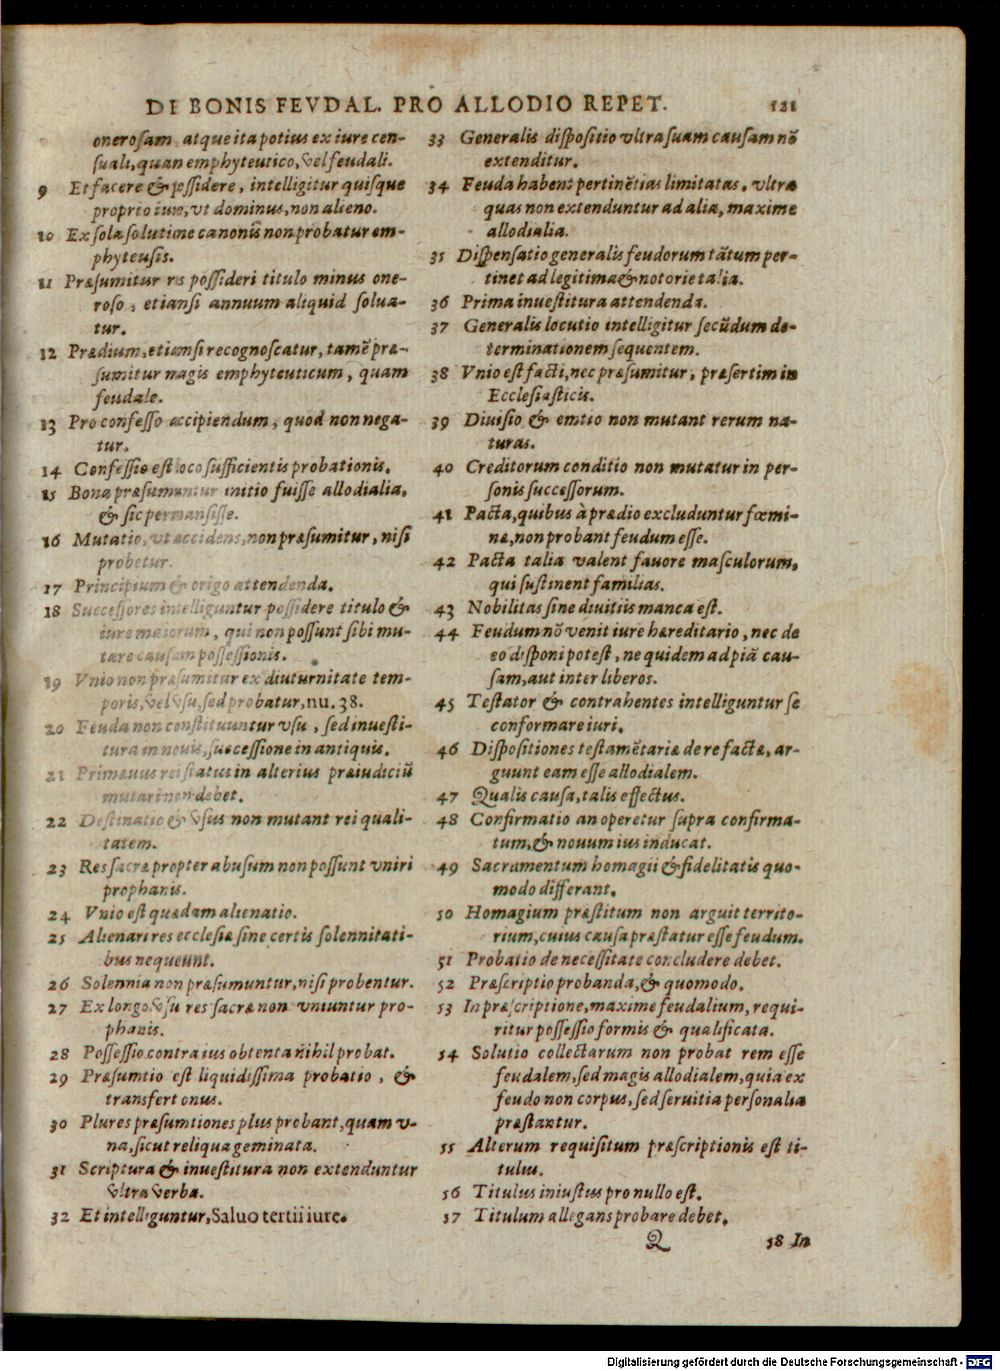 DE BONIS FEVDAL. PRO ALLODIO REPET. 121
onerosam atque ita potius ex iure cen-
suali, quàm emphyteutico, vel feudali.
9 Et facere & possidere, intelligitur quisque
proprio iure, vt dominus, non alieno.
10 Ex sola solutione canonis non probatur em-
phyteusis.
11 Præsumitur res possideri titulo minus one-
roso, etiansi annuum aliquid solua-
tur.
12 Prædium, etiamsi recognoscatur, tamē præ-
sumitur magis emphyteuticum, quam
feudale.
13 Pro confesso accipiendum, quod non nega-
tur.
14 Confessio est loco sufficientis probationis.
15 Bona præsumuntur initio fuisse allodialia,
& sic permansisse.
16 Mutatio, vt accidens, non præsumitur, nisi
probetur.
17 Principium & origo attendenda.
18 Successores intelliguntur possidere titulo &
iure maiorum, qui non possunt sibi mu-
tare causam possessionis.
19 Vnio non præsumitur ex diuturnitate tem-
poris, vel vsu, sed probatur, nu. 38.
20 Feuda non constituuntur vsu, sed inuesti-
tura in nouis, successione in antiquis.
21 Primæuus rei status in alterius præiudiciū
mutari non debet.
22 Destinatio & vsus non mutant rei quali-
tatem.
23 Res sacræ propter abusum non possunt vniri
prophanis.
24 Vnio est quædam alienatio.
25 Alienari res ecclesiæ sine certis solennitati-
bus nequeunt.
26 Solennia non præsumuntur, nisi probentur.
27 Ex longo vsu res sacræ non vniuntur pro-
phanis.
28 Possessio contra ius obtenta nihil probat.
29 Præsumtio est liquidissima probatio, &
transfert onus.
30 Plures præsumtiones plus probant, quam v-
na, sicut reliqua geminata.
31 Scriptura & inuestitura non extenduntur
vltra verba.
32 Et intelliguntur, Saluo tertii iure.
33 Generalis dispositio vltra suam causam nō
extenditur.
34 Feuda habent pertinētias limitatas, vltra
quas non extenduntur ad alia, maxime
allodialia.
35 Dispensatio generalis feudorum tātum per-
tinet ad legitima & notorie talia.
36 Prima inuestitura attendenda.
37 Generalis locutio intelligitur secūdum de-
terminationem sequentem.
38 Vnio est facti, nec præsumitur, præsertim in
Ecclesiasticis.
39 Diuisio & emtio non mutant rerum na-
turas.
40 Creditorum conditio non mutatur in per-
sonis successorum.
41 Pacta, quibus à prædio excluduntur fœmi-
næ, non probant feudum esse.
42 Pacta talia valent fauore masculorum,
qui sustinent familias.
43 Nobilitas sine diuitiis manca est.
44 Feudum nō venit iure hæreditario, nec de
eo disponi potest, ne quidem ad piā cau-
sam, aut inter liberos.
45 Testator & contrahentes intelliguntur se
conformare iuri.
46 Dispositiones testamētariæ de re facta, ar-
guunt eam esse allodialem.
47 Qualis causa, talis effectus.
48 Confirmatio an operetur supra confirma-
tum, & nouum ius inducat.
49 Sacramentum homagii & fidelitatis quo-
modo differant.
50 Homagium præstitum non arguit territo-
rium, cuius causa præstatur esse feudum.
51 Probatio de necessitate concludere debet.
52 Præscriptio probanda, & quomodo.
53 In præscriptione, maxime feudalium, requi-
ritur possessio formis & qualificata.
54 Solutio collectarum non probat rem esse
feudalem, sed magis allodialem, quia ex
feudo non corpus, sed seruitia personalia
præstantur.
55 Alterum requisitum præscriptionis est ti-
tulus.
56 Titulus iniustus pro nullo est.
57 Titulum allegans probare debet.
Q 58 In
Digitalisierung gefördert durch die Deutsche Forschungsgemeinschaft - DFG